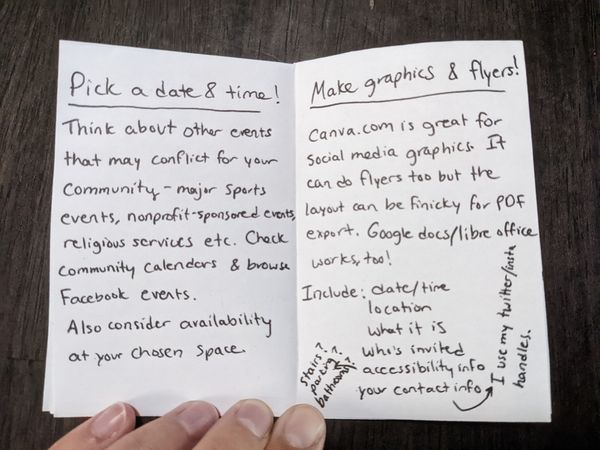 Pick a date & time!
Think about other events
that may conflict for your
community - major sports
events, nonprofit-sponsored events,
religious services etc. Check
community calendars & browse
Facebook events.
Also consider availability
at your chosen space.
Make graphics & flyers!
Canva.com is great for
social media graphics. It
can do flyers too but the
layout can be finicky for PDF
export. Google docs/libre office
works, too!
Include: date/time
location
what it is
who's invited
accessibility info
your contact info
stairs?
parking?
bathroom?
I use my twitter/insta
handles.